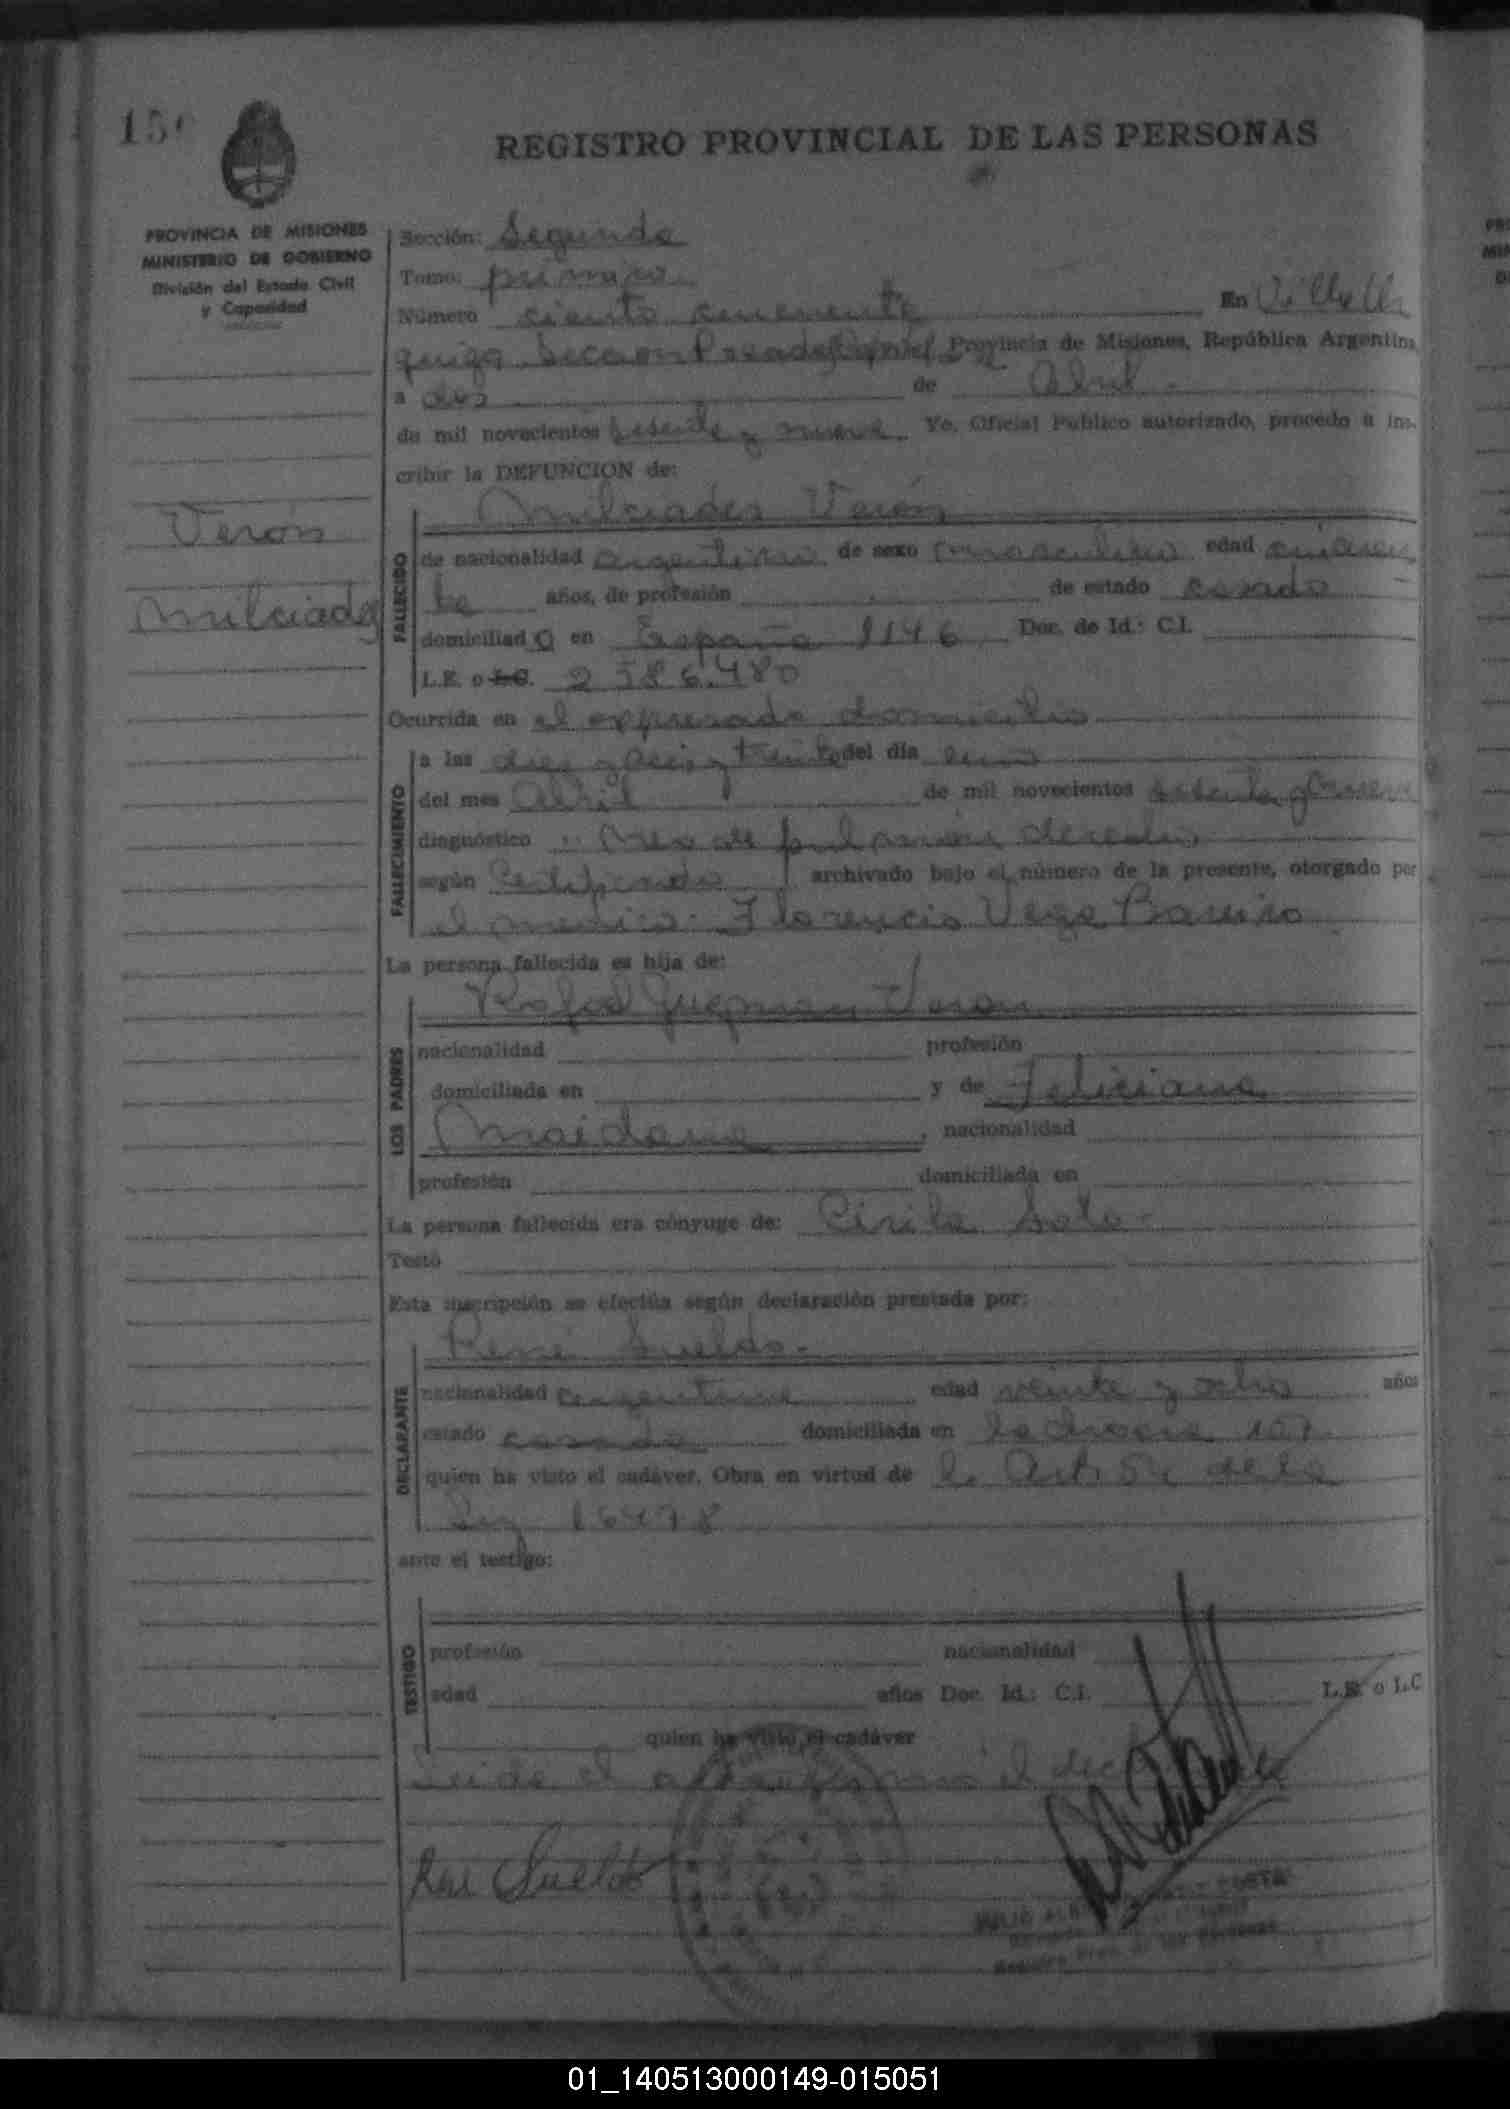 150
REGISTRO PROVINCIAL DE LAS PERSONAS
PROVINCIA DE MISIONES
MINISTERIO DE GOBIERNO
División del Estado Civil
y Capacidad
Sección: Segunda
Tomo: primero
Número ciento cincuenta En Villa Ur
quiza Sección Posadas Provincia de Misiones, República Argentina,
a dos de Abril
de mil novecientos sesenta y nueve. Yo, Oficial Público autorizado, procedo a ins-
cribir la DEFUNCION de:
Verón
Milciades
FALLECIDO
Milciades Verón
de nacionalidad argentino de sexo masculino edad
años, de profesión de estado casado
domiciliado en España 1146 Doc. de Id.: C.I.
L.E. o L.C. 2.586.480
Ocurrida en el expresado domicilio
FALLECIMIENTO
a las diez y seis y treinta del día uno
del mes Abril de mil novecientos sesenta y nueve
diagnóstico pulmón derecho
según Certificado archivado bajo el número de la presente, otorgado por
el médico: Florencio Vega Barreiro
La persona fallecida es hija de:
LOS PADRES
Rafael Guzman Veron
nacionalidad profesión
domiciliada en y de Feliciana
Maidana, nacionalidad
profesión domiciliada en
La persona fallecida era cónyuge de: Cirila Soto
Testó
Esta inscripción se efectúa según declaración prestada por:
DECLARANTE
René Sueldo.
nacionalidad argentina edad veinte y ocho años
estado casado domiciliada en 107
quien ha visto el cadáver. Obra en virtud de el Art. 5º de la
Ley 16478
ante el testigo:
TESTIGO
profesión nacionalidad
edad años Doc. Id.: C.I. L.E. o L.C
quien ha visto el cadáver
Leída el acta
René Sueldo
JULIO
01_140513000149-015051